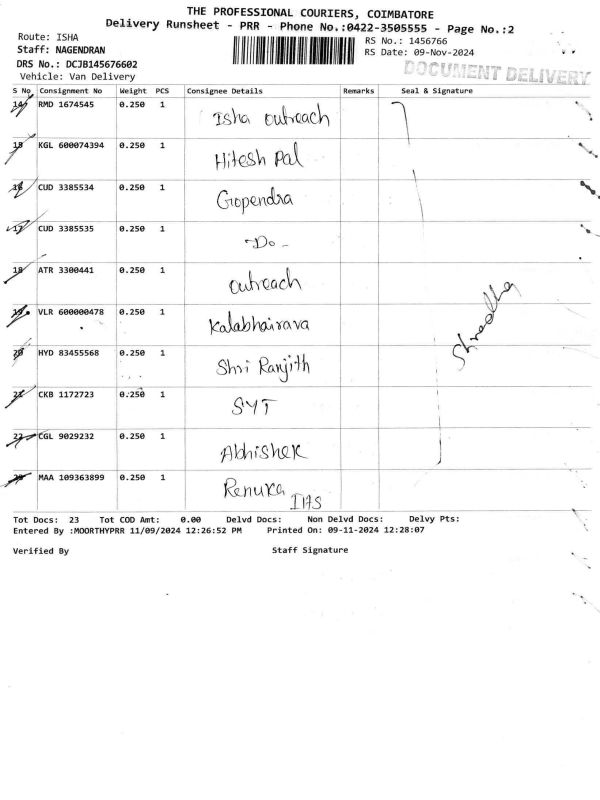 THE PROFESSIONAL COURIERS, COIMBATORE
Delivery Runsheet - PRR - Phone No.:0422-3505555 - Page No.:2
Route: ISHA
RS No.: 1456766
Staff: NAGENDRAN
RS Date: 09-Nov-2024
DRS No.: DCJB145676602
DOCUMENT DELIVERY
Vehicle: Van Delivery
S No Consignment No Weight PCS Consignee Details Remarks Seal & Signature
14 RMD 1674545 0.250 1 Isha outreach
15 KGL 600074394 0.250 1 Hitesh Pal
16 CUD 3385534 0.250 1 Gopendra
17 CUD 3385535 0.250 1 -Do-
18 ATR 3300441 0.250 1 outreach
19 VLR 600000478 0.250 1 Kalabhairava
20 HYD 83455568 0.250 1 Shri Ranjith
Shradha
21 CKB 1172723 0.250 1 SYT
22 CGL 9029232 0.250 1 Abhishek
23 MAA 109363899 0.250 1 Renuka IIAS
Tot Docs: 23 Tot COD Amt: 0.00 Delvd Docs: Non Delvd Docs: Delvy Pts:
Entered By :MOORTHYPRR 11/09/2024 12:26:52 PM Printed On: 09-11-2024 12:28:07
Verified By Staff Signature